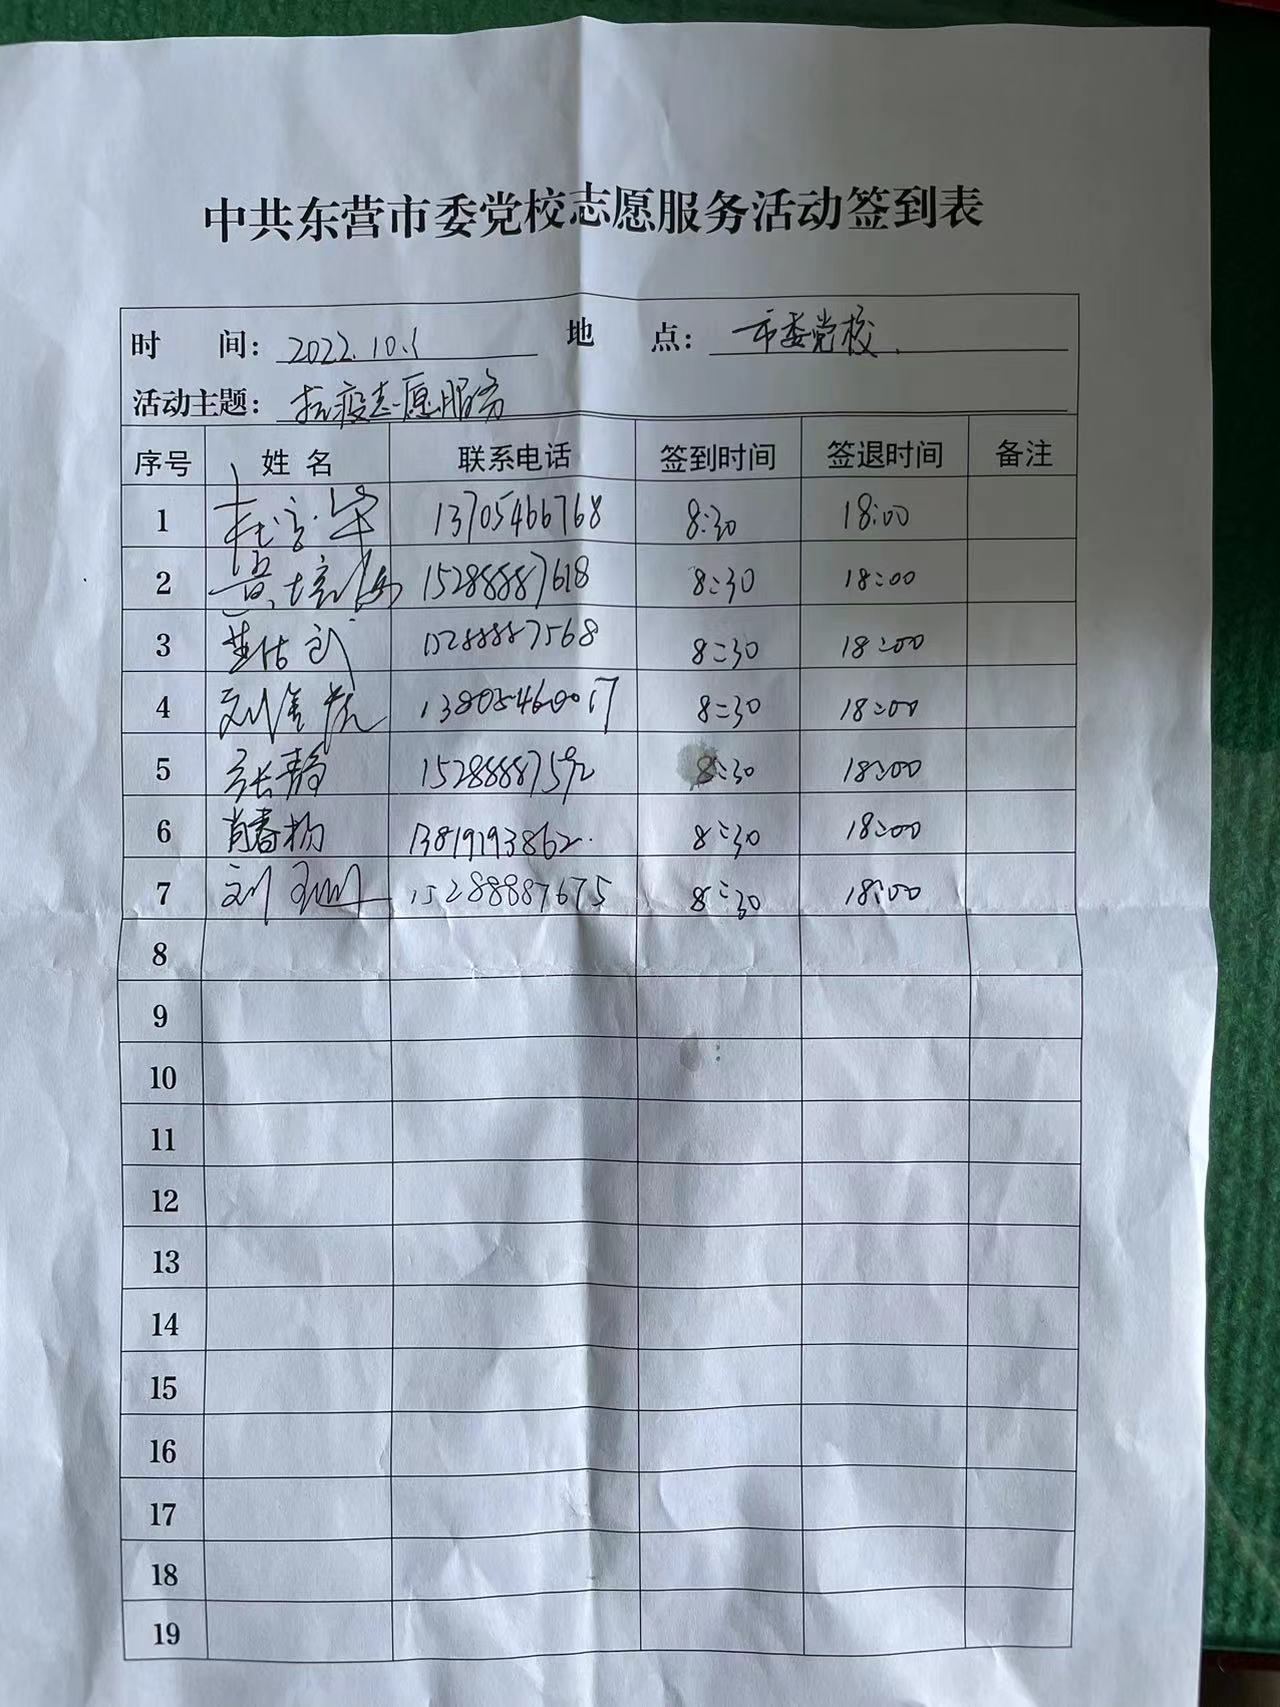 中共东营市委党校志愿服务活动签到表
时 间: 2022.10.1 地 点: 市委党校
活动主题: 抗疫志愿服务
序号 姓名 联系电话 签到时间 签退时间 备注
1 13705466768 8:30 18:00
2 15288887618 8:30 18:00
3 15288887568 8:30 18:00
4 13805460017 8:30 18:00
5 张静 15288887592 8:30 18:00
6 肖春杨 13819193862 8:30 18:00
7 刘 15288887675 8:30 18:00
8
9
10
11
12
13
14
15
16
17
18
19